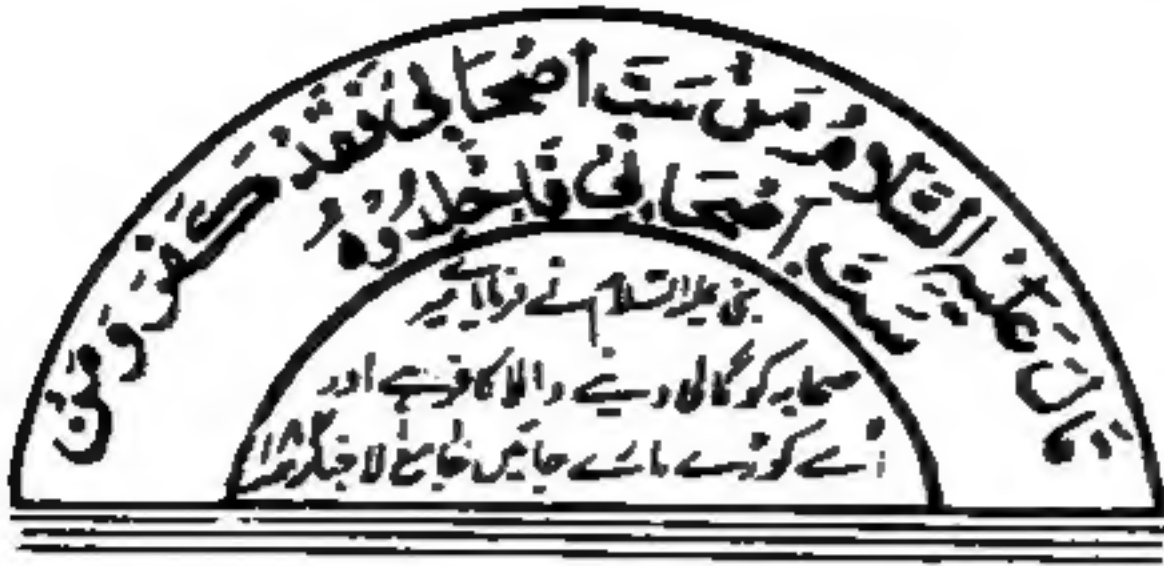 قَالَ عَلَيْهِ السَّلَامُ مَنْ سَبَّ أَصْحَابِيْ فَقَدْ كَفَرَ وَمَنْ
سَبَّ أَصْحَابِيْ فَاجْلِدُوْهُ
نبی علیہ السلام نے فرمایا میرے
صحابہ کو گالی دینے والا کافر ہے اور
اُسے کوڑے مارے جائیں جامع الاخبار